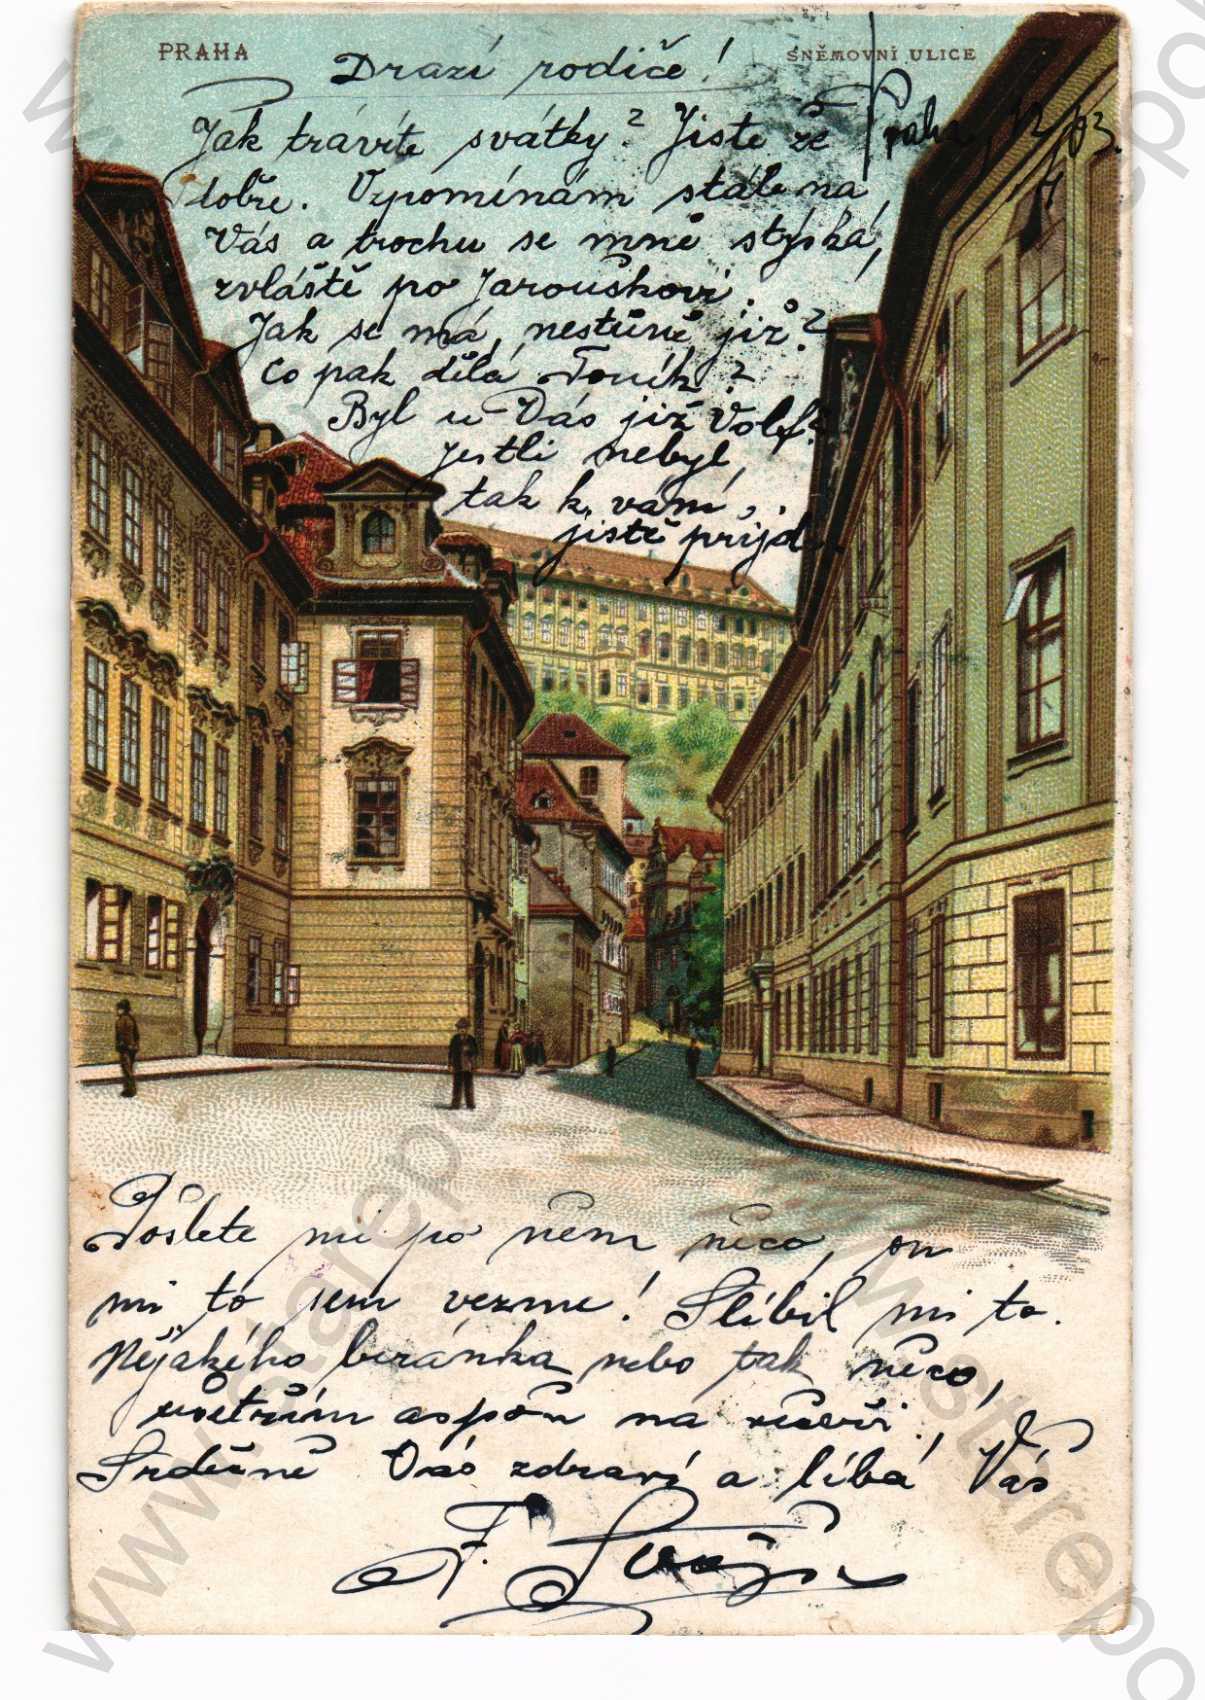 PRAHA
SNĚMOVNÍ ULICE
Drazí rodiče!
Jak trávíte svátky? Jistě že
dobře. Vzpomínám stále na
Vás a trochu se mně stýská,
zvláště po Jarouškovi.
Jak se má, nestůně již?
Co pak dělá Toník?
Byl u Vás již Volf?
Jestli nebyl,
tak k vám
jistě přijde.
Pošlete mi po něm něco, on
mi to sem vezme! Slíbil mi to.
Nějakého beránka nebo tak něco,
ušetřím aspoň na
Srdečně Vás zdraví a líbá Váš
F.